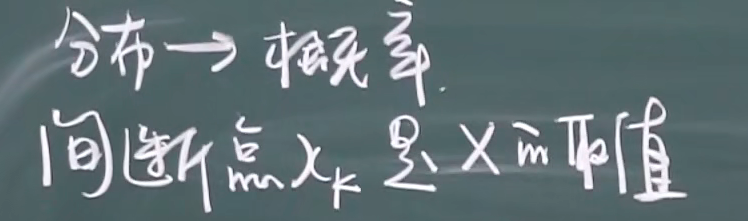 分布→概率.
间断点xₖ是X的取值